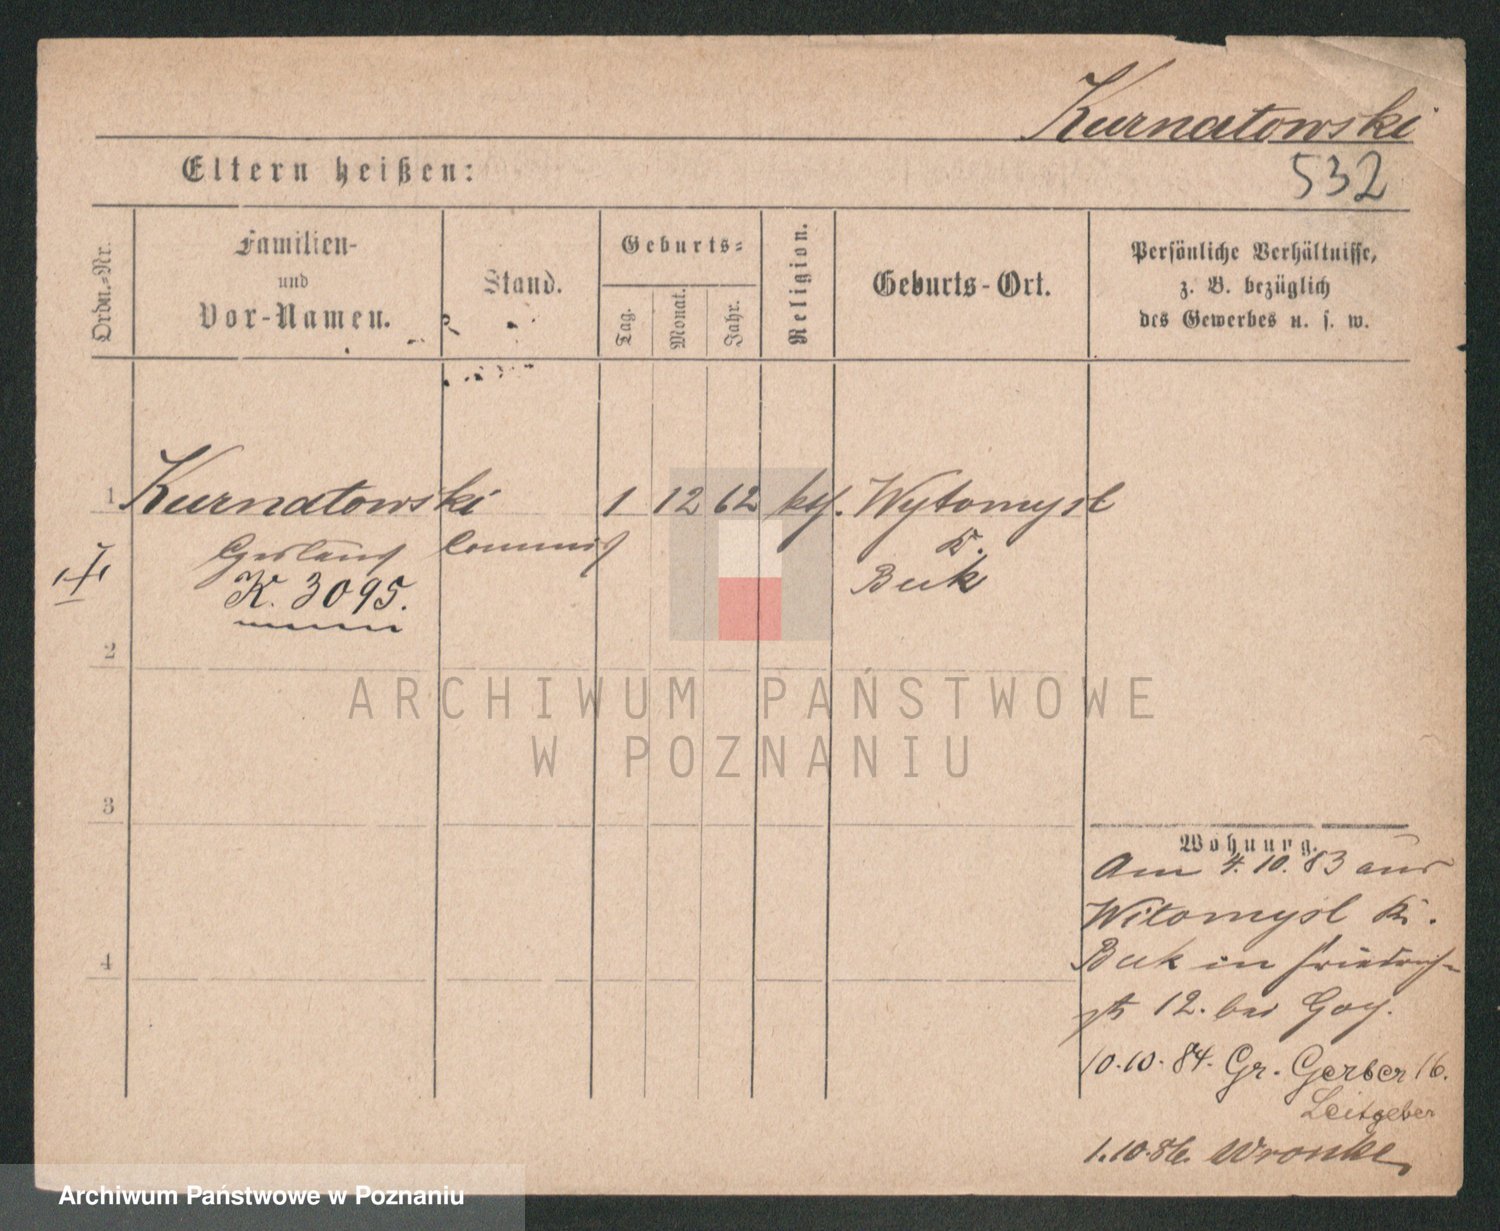 Kurnatowski
532
Eltern heißen:
Ordn.-Nr.
Familien-
und
Vor-Namen.
Stand.
Geburts-
Tag.
Monat.
Jahr.
Religion.
Geburts-Ort.
Persönliche Verhältnisse,
z. B. bezüglich
des Gewerbes u. s. w.
1 Kurnatowski 1 12 62 kth. Wytomysl
Commis K.
K. 3095. Buk
2
ARCHIWUM PAŃSTWOWE
W POZNANIU
3
Wohnung.
Am 4.10.83 aus
Witomysl K.
4
Buk in Friedrich-
str 12. bei Goy.
10.10.84. Gr. Gerber 16.
Leitgeber
1.10.86. Wronke
Archiwum Państwowe w Poznaniu